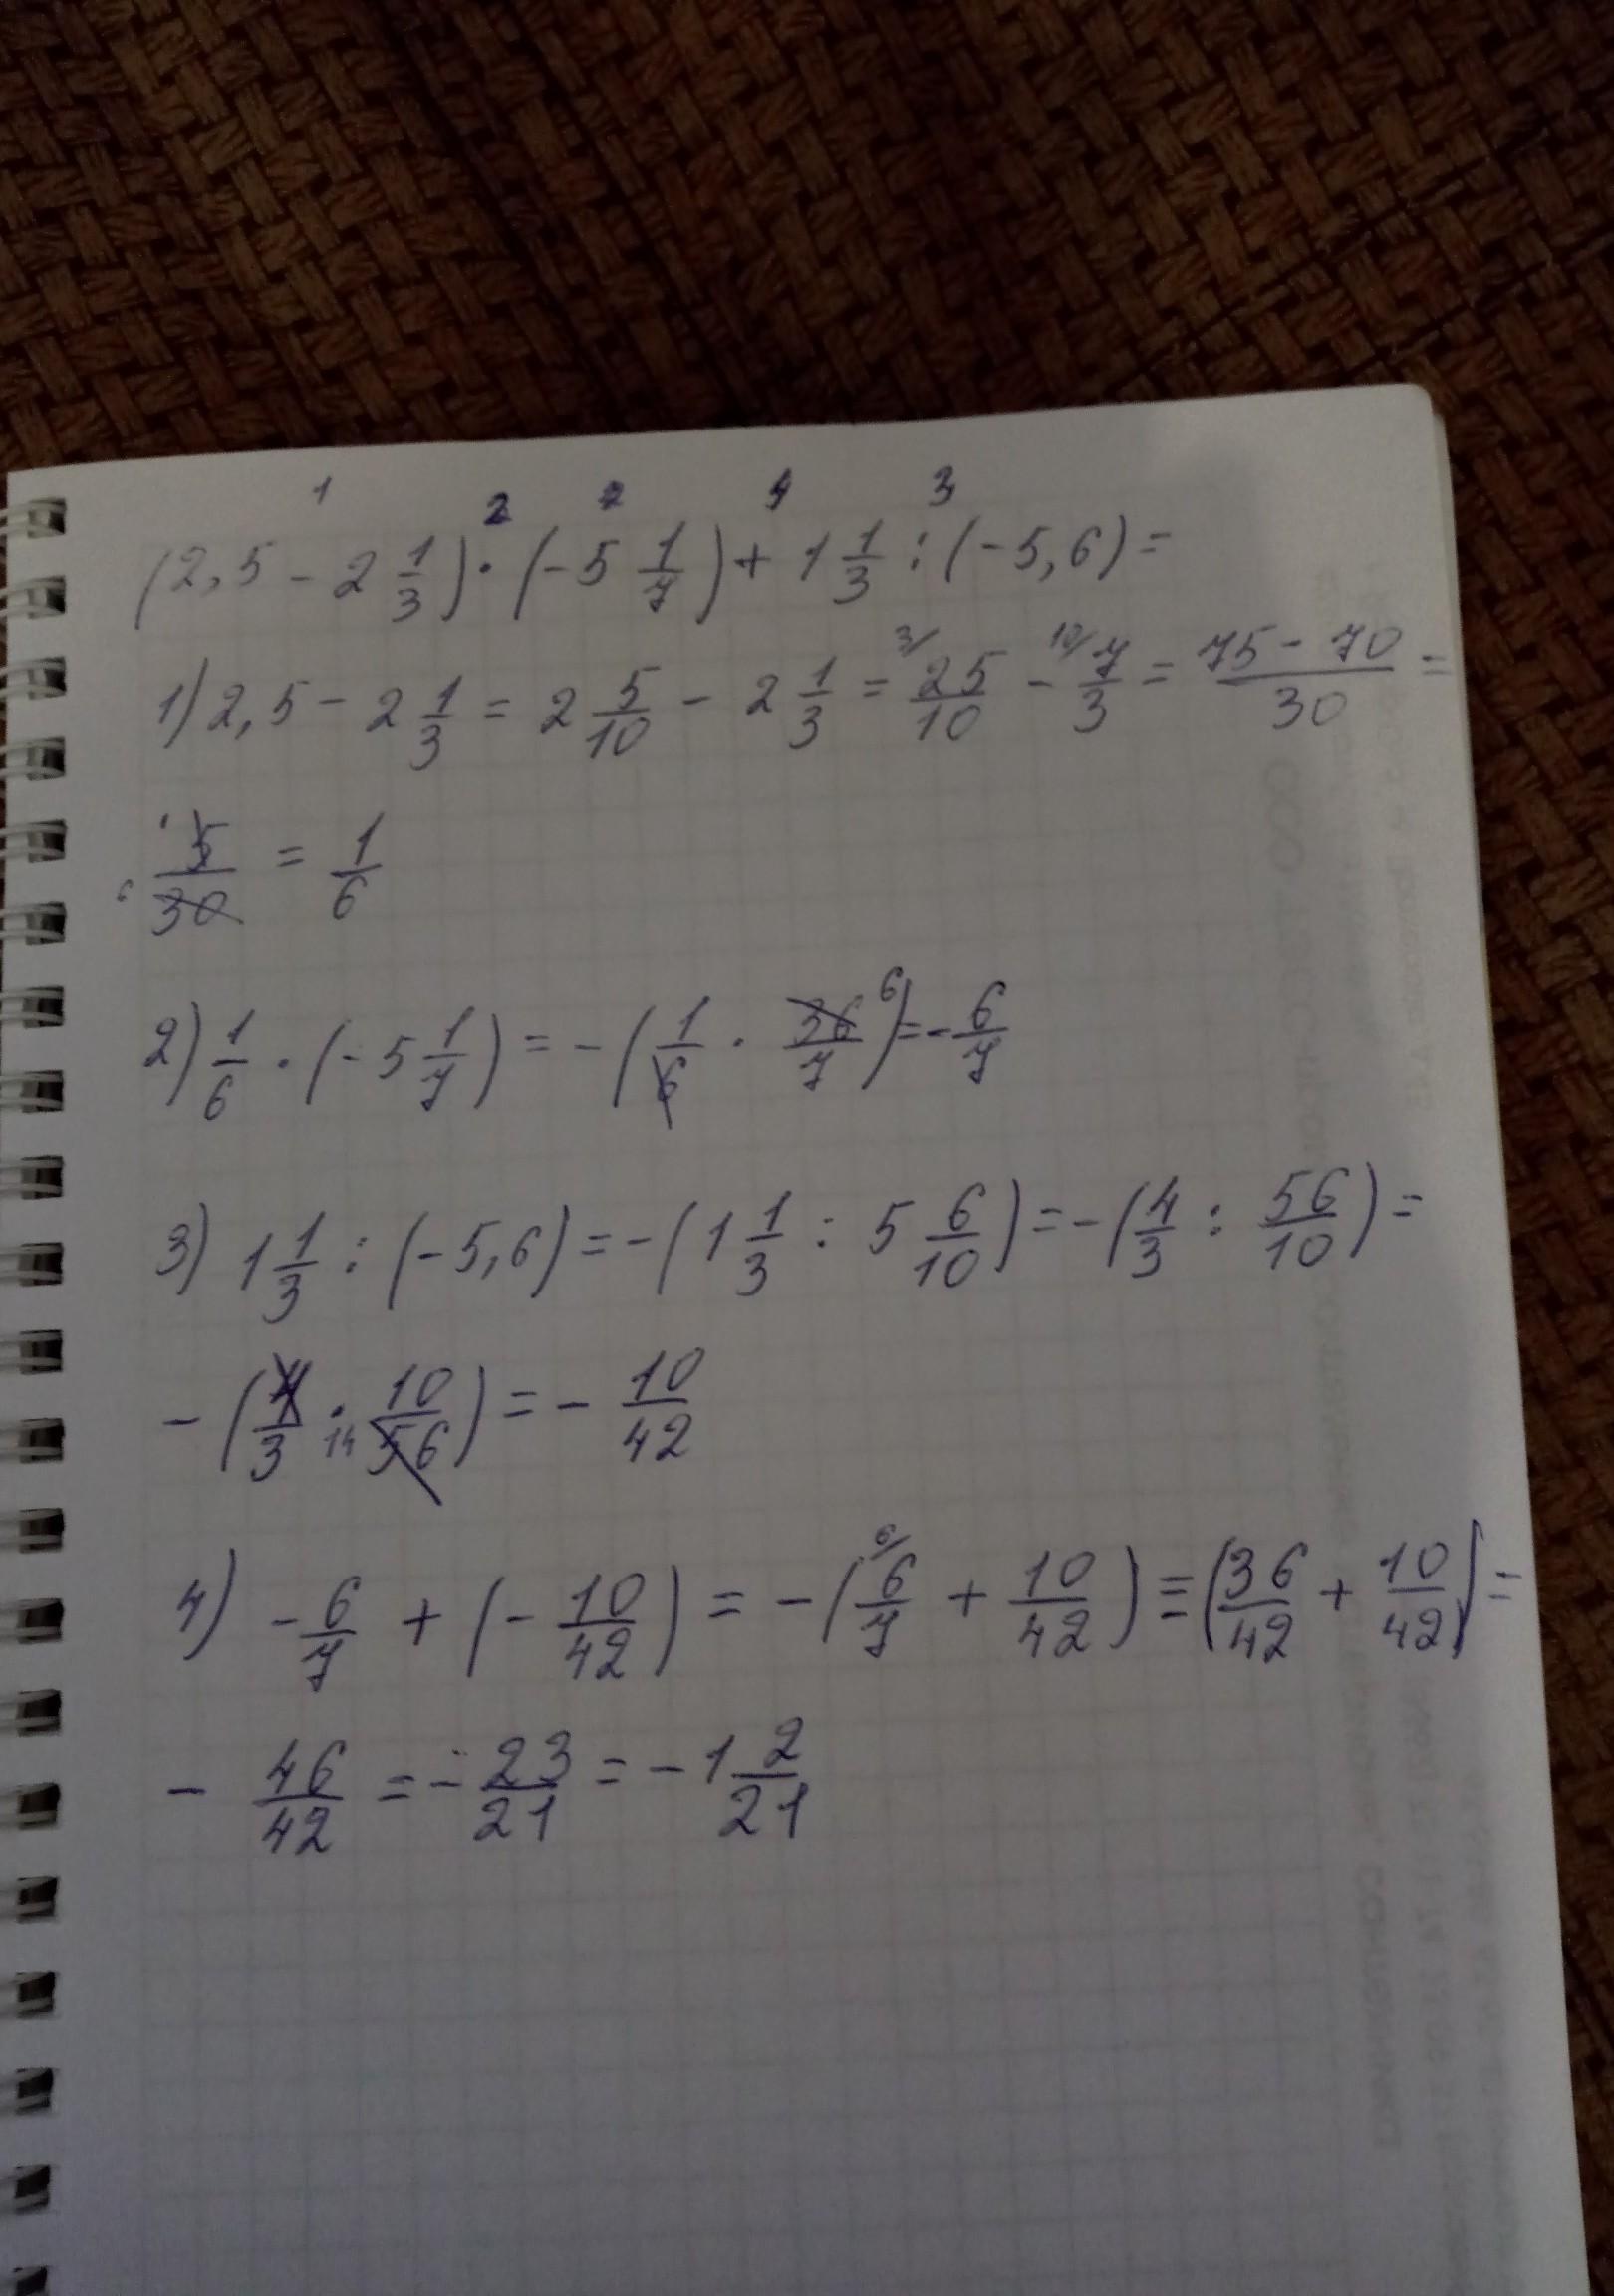 1 2 2 4 3
(2,5 - 2 1/3) · (-5 1/7) + 1 1/3 : (-5,6) =
1) 2,5 - 2 1/3 = 2 5/10 - 2 1/3 = 3/ 25/10 - 10/ 7/3 = 75-70/30 =
5/30 = 1/6
2) 1/6 · (-5 1/7) = -(1/6 · 36/7 6) = - 6/7
3) 1 1/3 : (-5,6) = -(1 1/3 : 5 6/10) = -(4/3 : 56/10) =
-(4/3 · 10/56 14) = - 10/42
4) - 6/7 + (- 10/42) = -(6/ 6/7 + 10/42) = -(36/42 + 10/42) =
- 46/42 = - 23/21 = -1 2/21